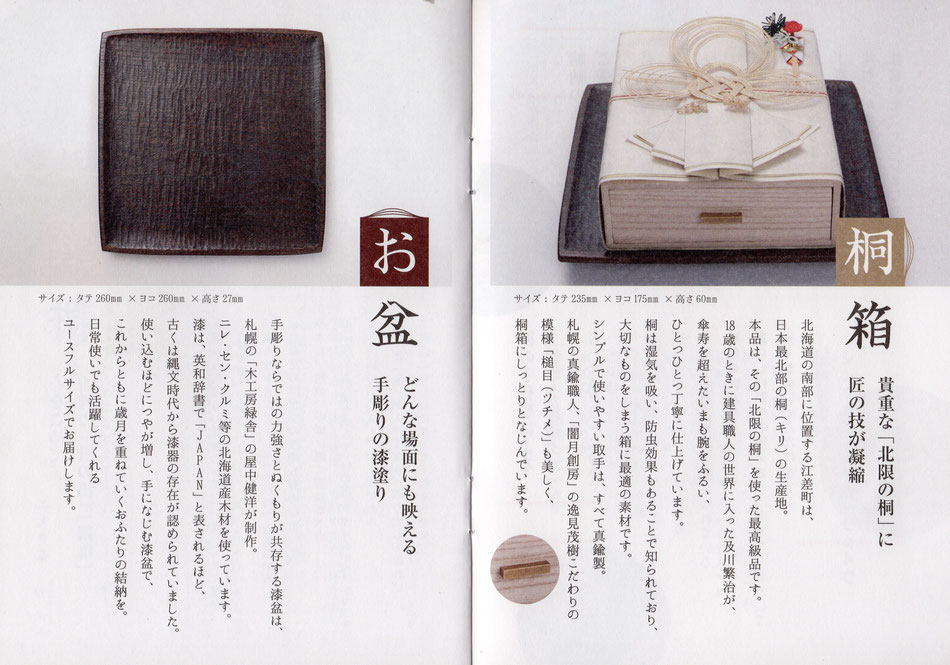 桐箱
貴重な「北限の桐」に
匠の技が凝縮
サイズ：タテ 235mm ×ヨコ 175mm ×高さ 60mm
北海道の南部に位置する江差町は、
日本最北部の桐（キリ）の生産地。
本品は、その「北限の桐」を使った最高級品です。
18歳のときに建具職人の世界に入った及川繁治が、
傘寿を超えたいまも腕をふるい、
ひとつひとつ丁寧に仕上げています。
桐は湿気を吸い、防虫効果もあることで知られており、
大切なものをしまう箱に最適の素材です。
シンプルで使いやすい取手は、すべて真鍮製。
札幌の真鍮職人、「闇月創房」の逸見茂樹こだわりの
模様「槌目（ツチメ）」も美しく、
桐箱にしっとりとなじんでいます。
お盆
どんな場面にも映える
手彫りの漆塗り
サイズ：タテ 260mm ×ヨコ 260mm ×高さ 27mm
手彫りならではの力強さとぬくもりが共存する漆盆は、
札幌の「木工房緑舎」の屋中健洋が制作。
ニレ・セン・クルミ等の北海道産木材を使っています。
漆は、英和辞書で「JAPAN」と表されるほど、
古くは縄文時代から漆器の存在が認められていました。
使い込むほどにつやが増し、手になじむ漆盆で、
これからともに歳月を重ねていくおふたりの結納を。
日常使いでも活躍してくれる
ユースフルサイズでお届けします。